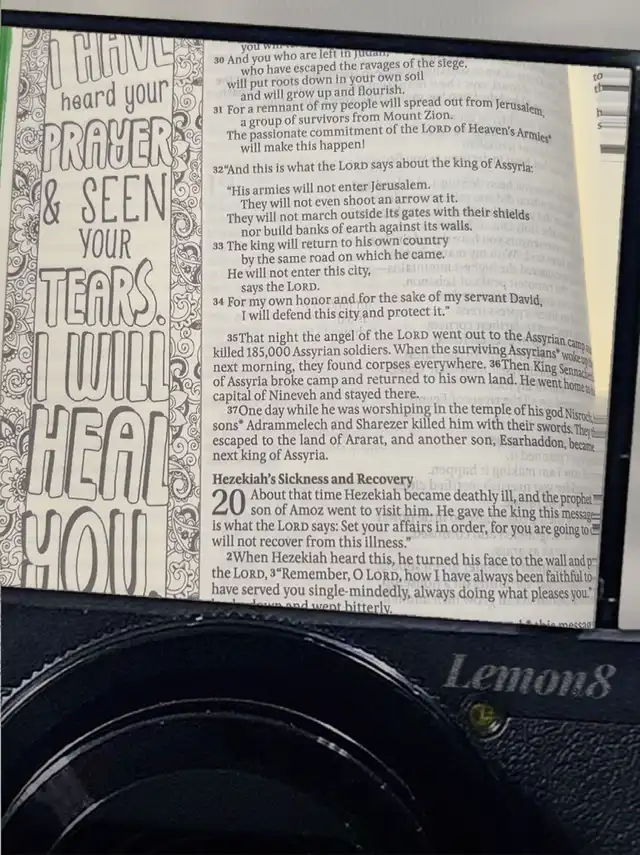 I HAVE
heard your
PRAYER
& SEEN
YOUR
TEARS.
I WILL
HEAL
YOU.
you will
30 And you who are left in Judah,
who have escaped the ravages of the siege,
will put roots down in your own soil
and will grow up and flourish.
31 For a remnant of my people will spread out from Jerusalem,
a group of survivors from Mount Zion.
The passionate commitment of the LORD of Heaven's Armies*
will make this happen!
32"And this is what the LORD says about the king of Assyria:
"His armies will not enter Jerusalem.
They will not even shoot an arrow at it.
They will not march outside its gates with their shields
nor build banks of earth against its walls.
33 The king will return to his own country
by the same road on which he came.
He will not enter this city,
says the LORD.
34 For my own honor and for the sake of my servant David,
I will defend this city and protect it."
35That night the angel of the LORD went out to the Assyrian camp
killed 185,000 Assyrian soldiers. When the surviving Assyrians* woke
next morning, they found corpses everywhere. 36Then King
of Assyria broke camp and returned to his own land. He went home
capital of Nineveh and stayed there.
37One day while he was worshiping in the temple of his god Nisroch
sons* Adrammelech and Sharezer killed him with their swords. They
escaped to the land of Ararat, and another son, Esarhaddon, became
next king of Assyria.
Hezekiah's Sickness and Recovery
20 About that time Hezekiah became deathly ill, and the prophet
son of Amoz went to visit him. He gave the king this message
is what the LORD says: Set your affairs in order, for you are going to
will not recover from this illness."
2When Hezekiah heard this, he turned his face to the wall and
the LORD, 3"Remember, O LORD, how I have always been faithful to
have served you single-mindedly, always doing what pleases you."
down and wept bitterly.
this messag
to
th
h
s
Lemon8